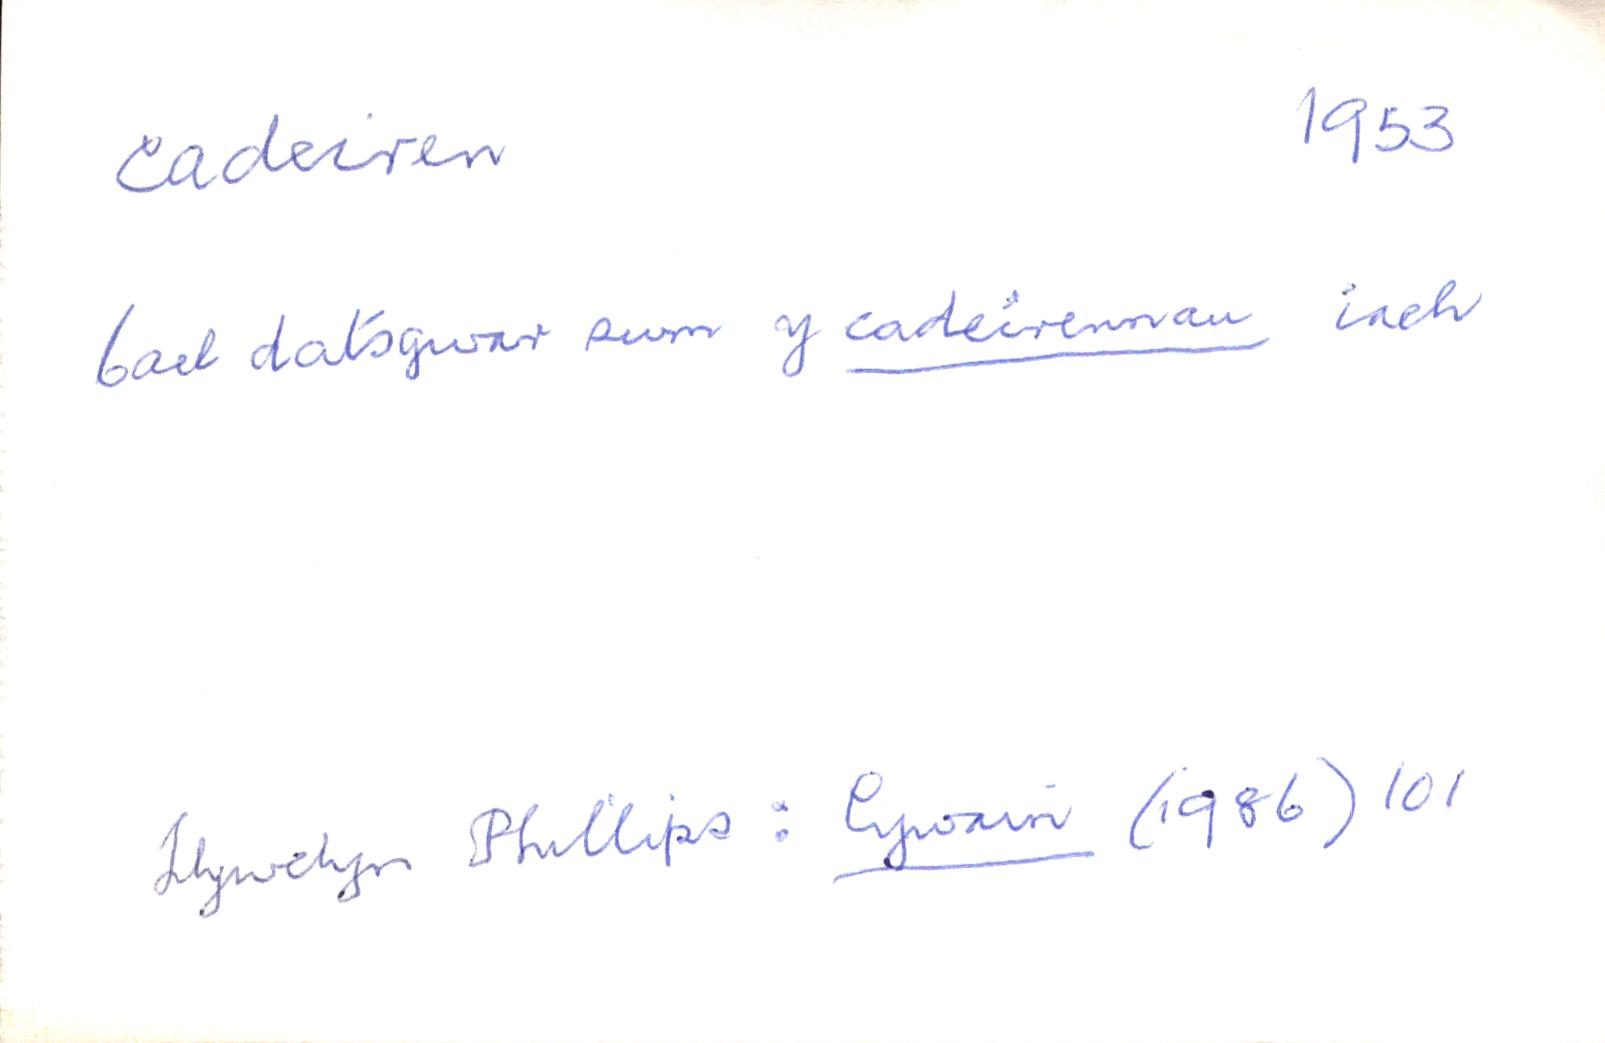 cadeiren 1953
cael datsgwar swm y cadeirennau iach
Llywelyn Phillips: Cywain (1986) 101